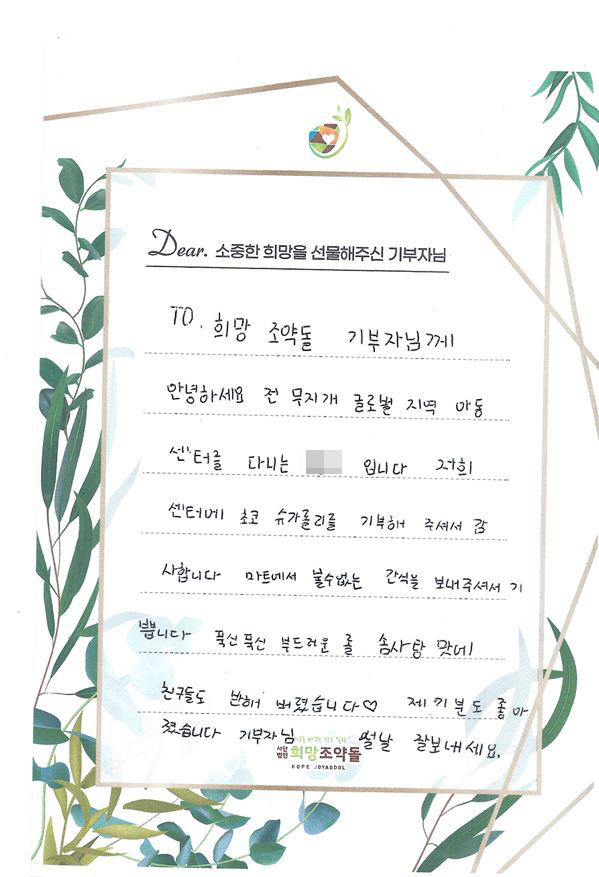 Dear. 소중한 희망을 선물해주신 기부자님
TO. 희망 조약돌 기부자님께
안녕하세요 전 무지개 글로벌 지역 아동
센터를 다니는 입니다 저희
센터에 초코 슈가롤리를 기부해 주셔서 감
사합니다 마트에서 볼수없는 간식을 보내주셔서 기
쁩니다 푹신푹신 부드러운 롤 솜사탕 맛에
친구들도 반해 버렸습니다♡ 제 기분도 좋아
졌습니다 기부자님 설날 잘보내세요.
사단법인 희망조약돌
HOPE JOYAGDOL